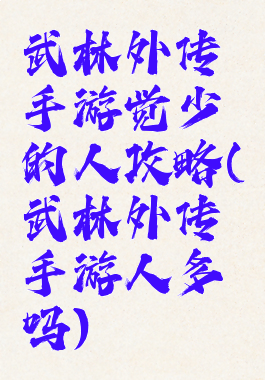 武林外传
手游觉少
的人攻略(
武林外传
手游人多
吗)